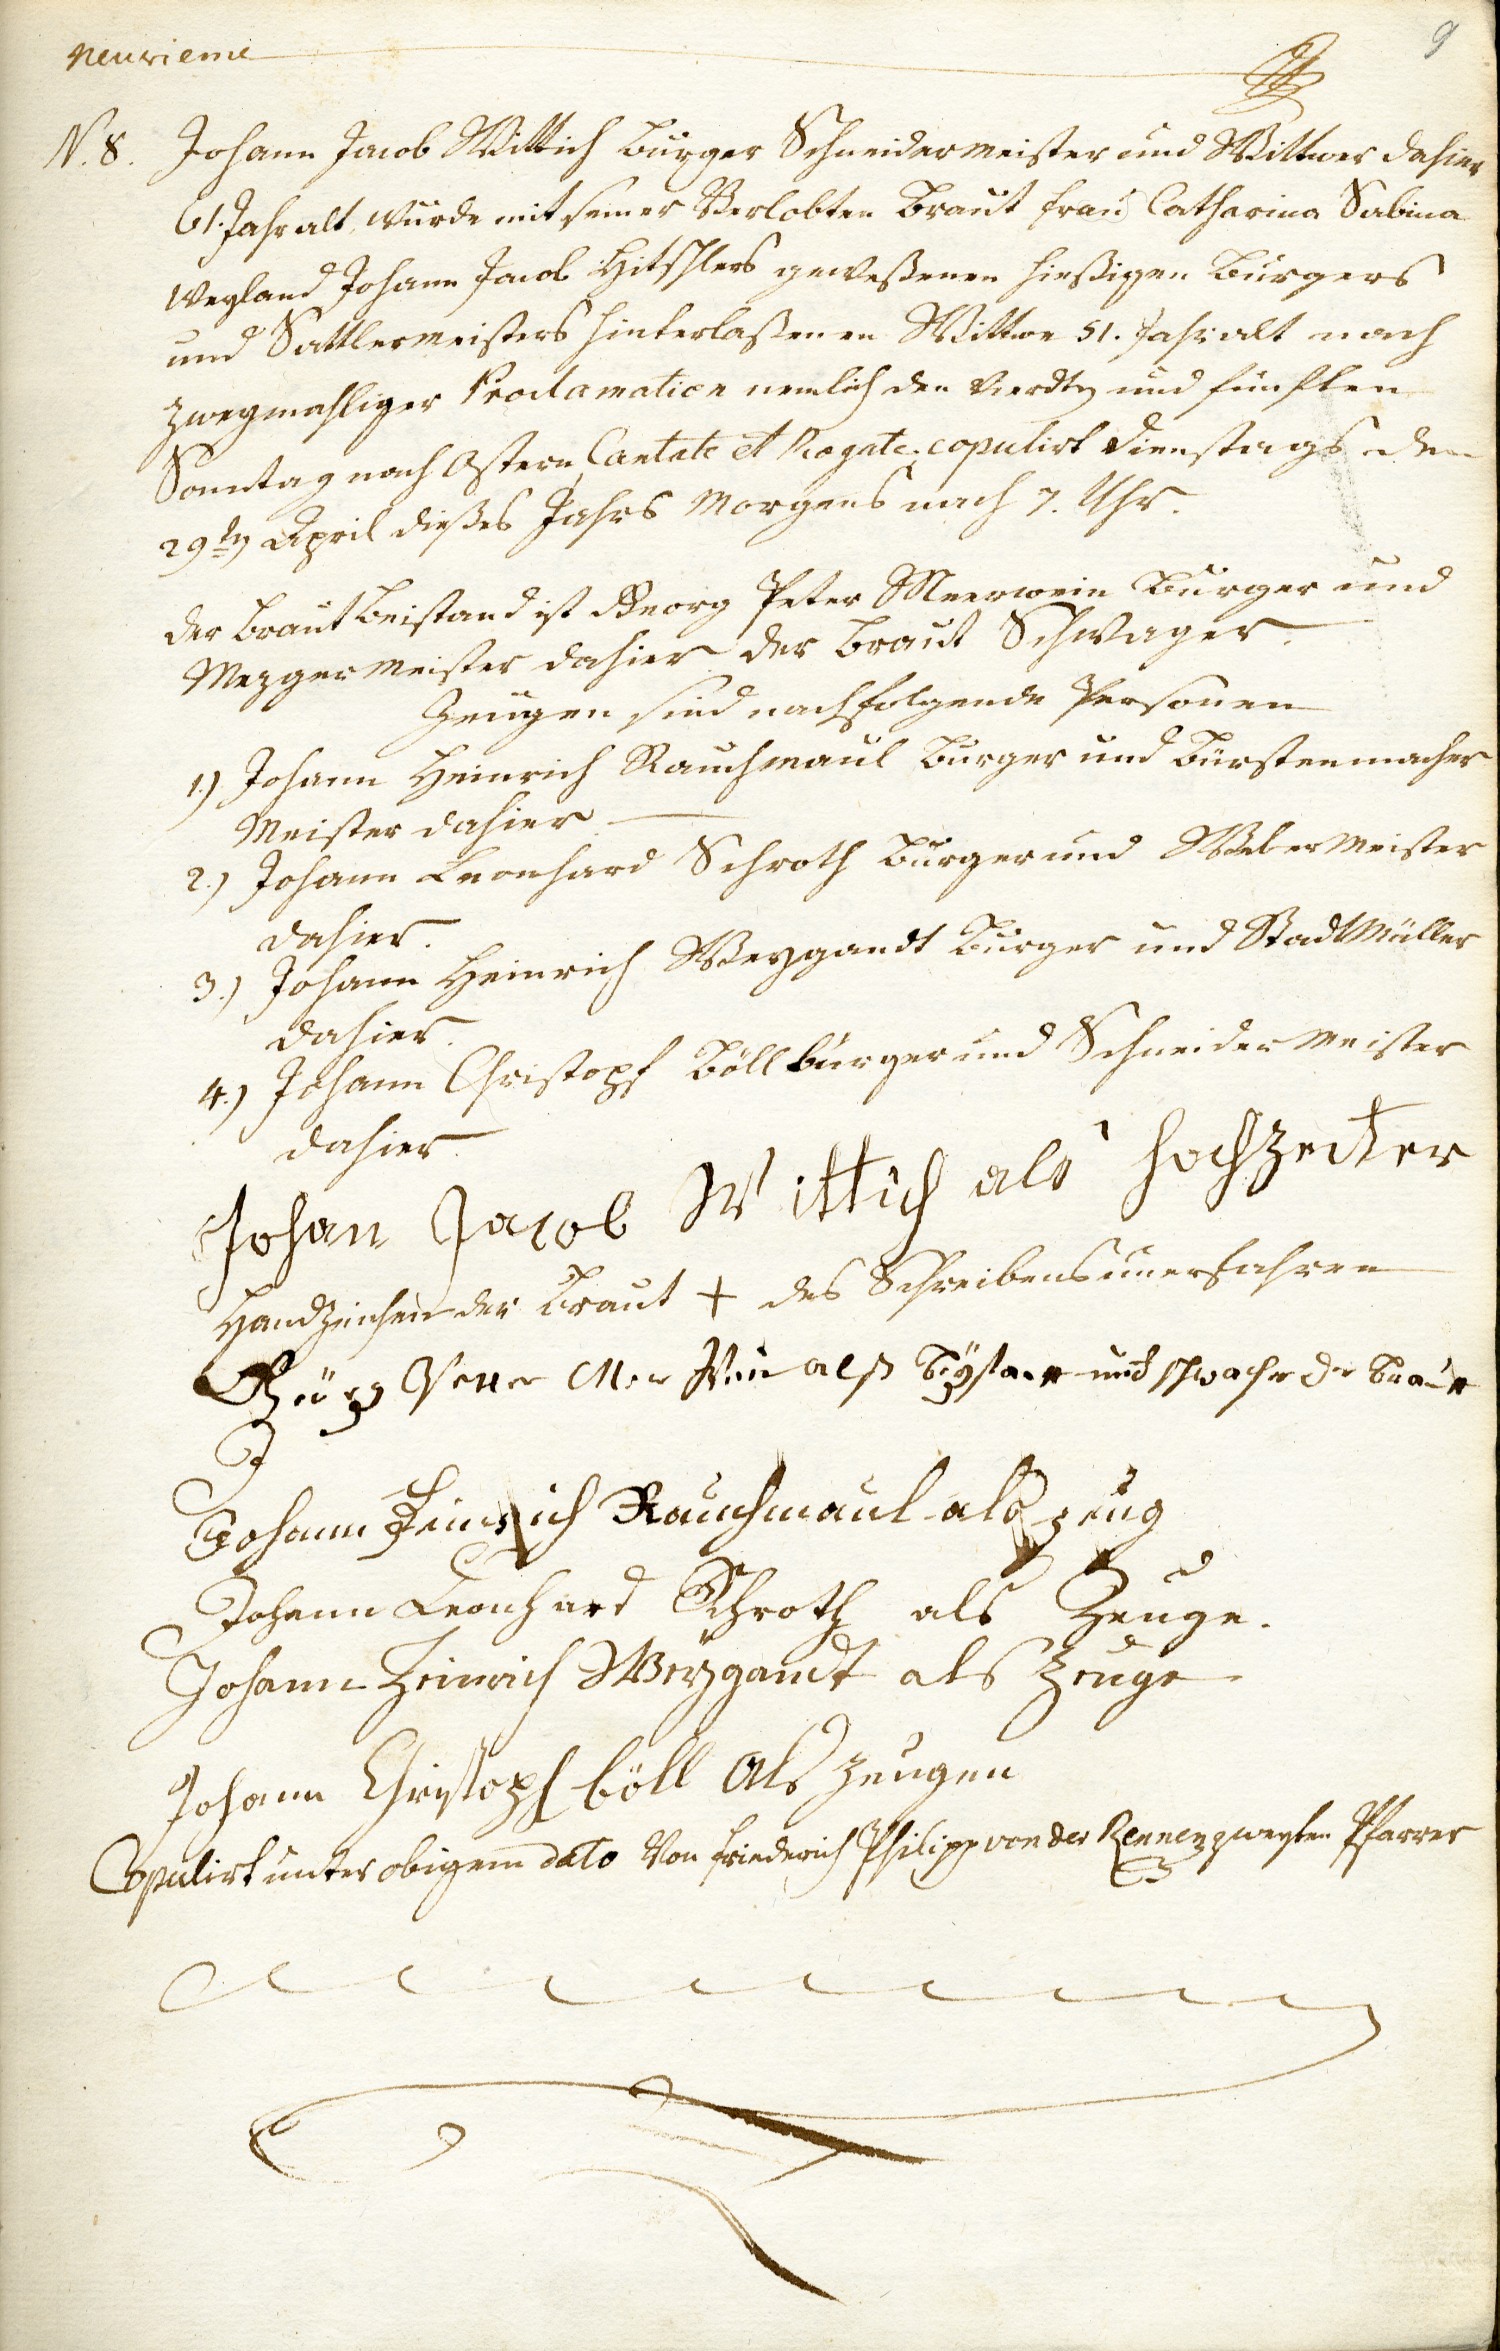 neuvieme
9
N. 8. Johann Jacob Wittich Bürger Schneidermeister und Wittwer dahier
61. Jahr alt, wurde mit seiner Verlobten Braut Frau Catharina Sabina
weyland Johann Jacob Hitschlers geweßenen hießigen Burgers
und Sattlermeisters hinterlaßenen Wittwe 51. Jahr alt nach
zweymahliger Proclamation nemlich den vierdten und fünften
Sonntag nach Ostern Cantate et Rogate, copulirt Dienstags den
29ten April dießes Jahrs Morgens nach 7. Uhr.
Der Braut Beistand ist Georg Peter Meerwein Bürger und
Mezgermeister dahier der Braut Schwager.
Zeugen sind nachfolgende Personen
1.) Johann Heinrich Rauchmaul Burger und Bürstenmacher
Meister dahier.
2.) Johann Leonhard Schroth Bürger und Weber Meister
dahier.
3.) Johann Heinrich Weygandt Bürger und Stadt Müller
dahier.
4.) Johann Christoph Böll bürger und Schneider Meister
dahier.
Johan Jacob Wittich als hochzeiter
Handzeichen der Braut + des Schreibens unerfahren
Görg Petter Mer Wein alß beÿstant und schwacher der Braut
Johann Heinrich Rauchmaul als zeug
Johann Leonhard Schroth als Zeuge.
Johann Heinrich Weÿgandt als Zeuge
Johann Christoph böll Als zeugen
Copulirt unter obigem dato von Friederich Philipp von der Rennen zweyten Pfarrer